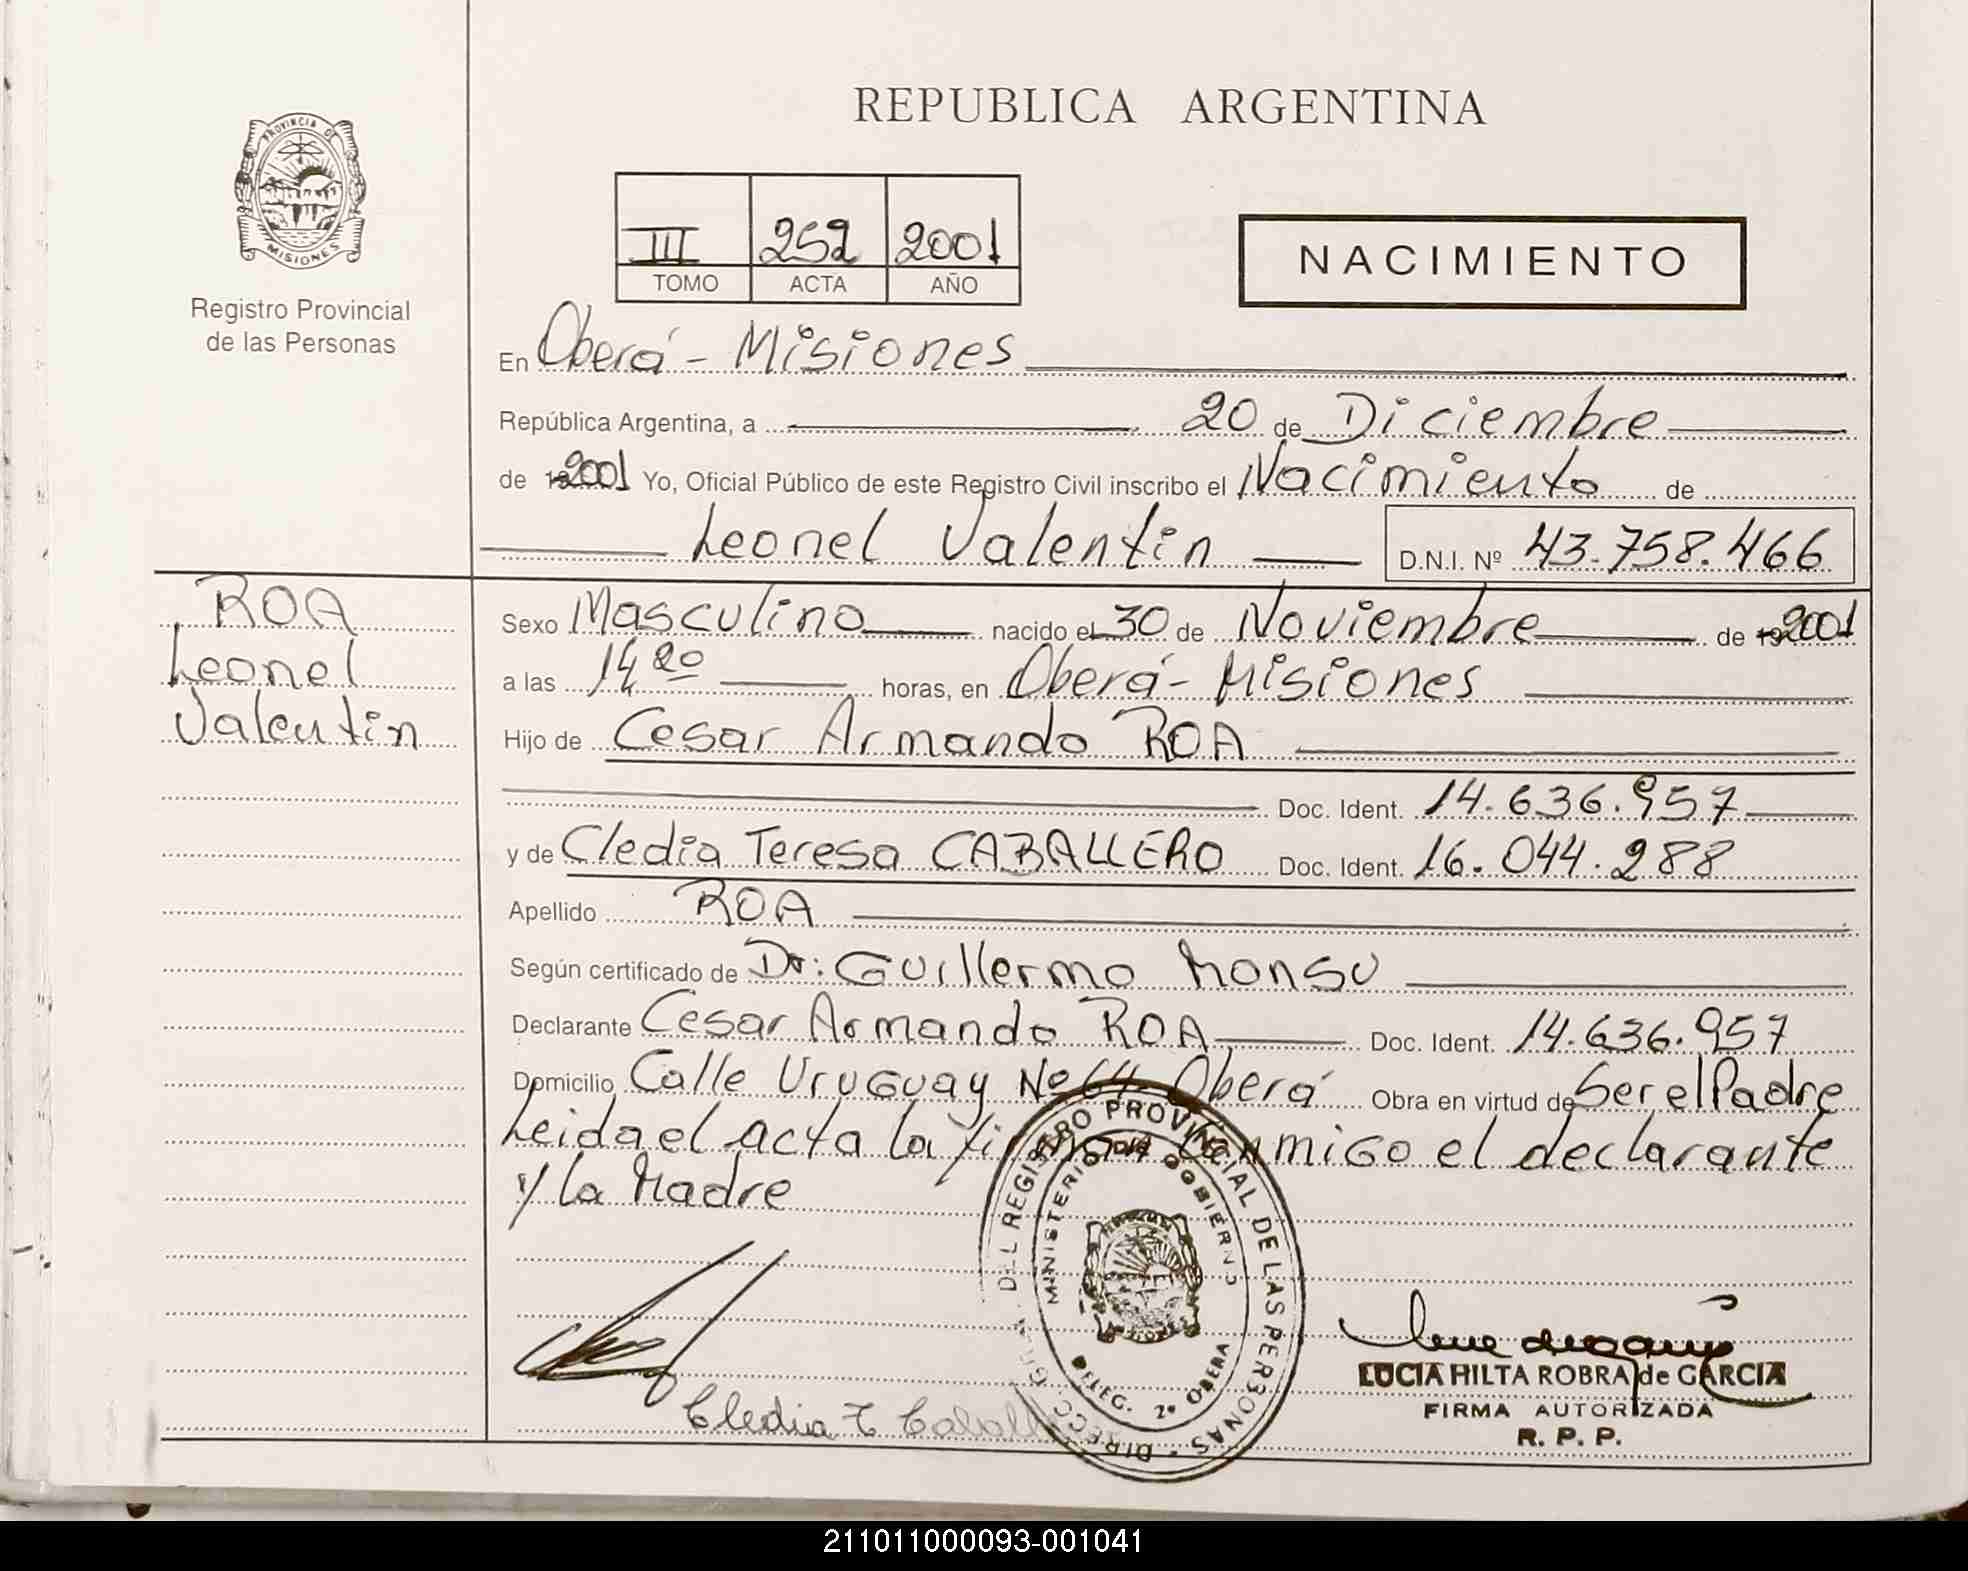 REPUBLICA ARGENTINA
PROVINCIA DE
MISIONES
Registro Provincial
de las Personas
III 252 2001
TOMO ACTA AÑO
NACIMIENTO
En Oberá - Misiones
República Argentina, a 20 de Diciembre
de 2001 Yo, Oficial Público de este Registro Civil inscribo el Nacimiento de
Leonel Valentin D.N.I. Nº 43.758.466
ROA
Leonel
Valentin
Sexo Masculino nacido el 30 de Noviembre de 2001
a las 14,20 horas, en Oberá - Misiones
Hijo de Cesar Armando ROA
Doc. Ident. 14.636.957
y de Cledia Teresa CABALLERO Doc. Ident. 16.044.288
Apellido ROA
Según certificado de Dr: Guillermo Monsu
Declarante Cesar Armando ROA Doc. Ident. 14.636.957
Domicilio Calle Uruguay Nº 64 Oberá Obra en virtud de Ser el Padre
Leida el acta la firman conmigo el declarante
y la Madre
DIRECC. GRAL. DEL REGISTRO PROVINCIAL DE LAS PERSONAS
MINISTERIO DE GOBIERNO
DELEG. 2º OBERA
Cledia T Caball
LUCIA HILTA ROBRA de GARCIA
FIRMA AUTORIZADA
R. P. P.
211011000093-001041